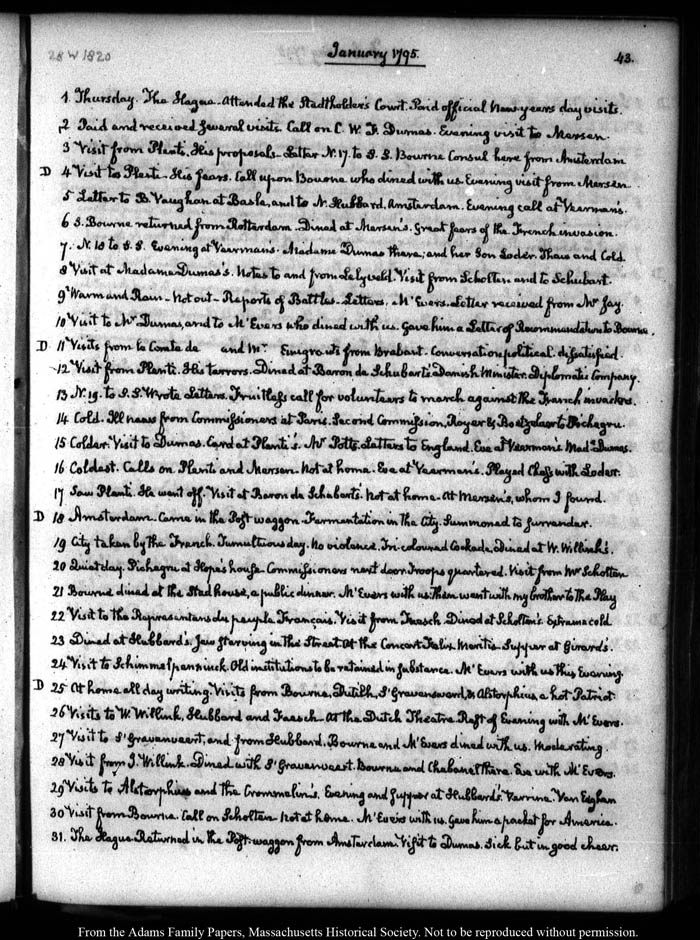 28 W 1820
January 1795.
43.
1 Thursday. The Hague. Attended the Stadtholder's Court. Paid official New years day visits.
2 Paid and received several visits. Call on C. W. F. Dumas. Evening visit to Mersen.
3 Visit from Planti. His proposals. Letter N. 17. to S. S. Bourne Consul here from Amsterdam
D 4 Visit to Planti. His fears. Call upon Bourne who dined with us. Evening visit from Mersen.
5 Letter to B. Vaughan at Basle, and to N. Hubbard, Amsterdam. Evening call at Veerman's.
6 S. Bourne returned from Rotterdam. Dined at Mersen's. Great fears of the French invasion.
7. N. 18 to S.S. Evening at Veerman's. Madame Dumas there, and her Son Loder. Thaw and Cold.
8 Visit at Madame Dumas's. Notes to and from Lelyveld. Visit from Scholten and to Schubart.
9 Warm and Rain. Not out. Reports of Battles. Letters. McEvers. Letter received from Mr Jay.
10 Visit to Mr Dumas, and to McEvers who dined with us. Gave him a Letter of Recommendation to Bourne.
D 11 Visits from le Comte de and Mr. Emigrants from Brabant. Conversation political. dissatisfied.
12 Visit from Planti. His terrors. Dined at Baron de Schubart's Danish Minister. Diplomatic Company.
13 N. 19. to S.S. Wrote Letters. Fruitless call for volunteers to march against the French invaders.
14 Cold. Ill news from Commissioners at Paris. Second Commission, Royer & Boetzelaert. Pichegru.
15 Colder. Visit to Dumas. Card at Planti's. Mr Potts. Letters to England. Eve at Veerman's Made Dumas.
16 Coldest. Calls on Planti and Mersen. Not at home. Eve at Veerman's. Played Chess with Loder.
17 Saw Planti. He went off. Visit at Baron de Schubart's. Not at home. At Mersen's, whom I found.
D 18 Amsterdam. Came in the Post waggon. Fermentation in the City. Summoned to surrender.
19 City taken by the French. Tumultuous day. No violence. Tri-coloured Cockade. Dined at W. Willink's.
20 Quiet day. Pichegru at Hope's house. Commissioners next door. Troops quartered. Visit from Mr Scholten
21 Bourne dined at the Stad house, a public dinner. McEvers with us: then went with my brother to the Play
22 Visit to the Representans du peuple Français. Visit from Faesch. Dined at Scholten's. Extreme cold.
23 Dined at Hubbard's. Jew starving in the Street. At the Concert Felix Meritis. Supper at Girard's.
24 Visit to Schimmelpenninck. Old institutions to be retained in substance. McEvers with us this Evening.
D 25 At home all day writing. Visits from Bourne, Dutilh, S'Gravensweert, & Alstorphius, a hot Patriot
26 Visits to W. Willink, Hubbard and Faesch. At the Dutch Theatre. Rest of Evening with McEvers.
27 Visit to S'Gravenweert, and from Hubbard. Bourne and McEvers dined with us. Moderating.
28 Visit from J. Willink. Dined with S'Gravenweert. Bourne and Chabanel there. Eve with McEvers.
29 Visits to Alstorphius and the Crommelin's. Evening and supper at Hubbard's. Verrine. Van Eeghan
30 Visit from Bourne. Call on Scholten not at home. McEvers with us. Gave him a packet for America.
31. The Hague. Returned in the Post-waggon from Amsterdam. Visit to Dumas. Sick but in good cheer.
From the Adams Family Papers, Massachusetts Historical Society. Not to be reproduced without permission.